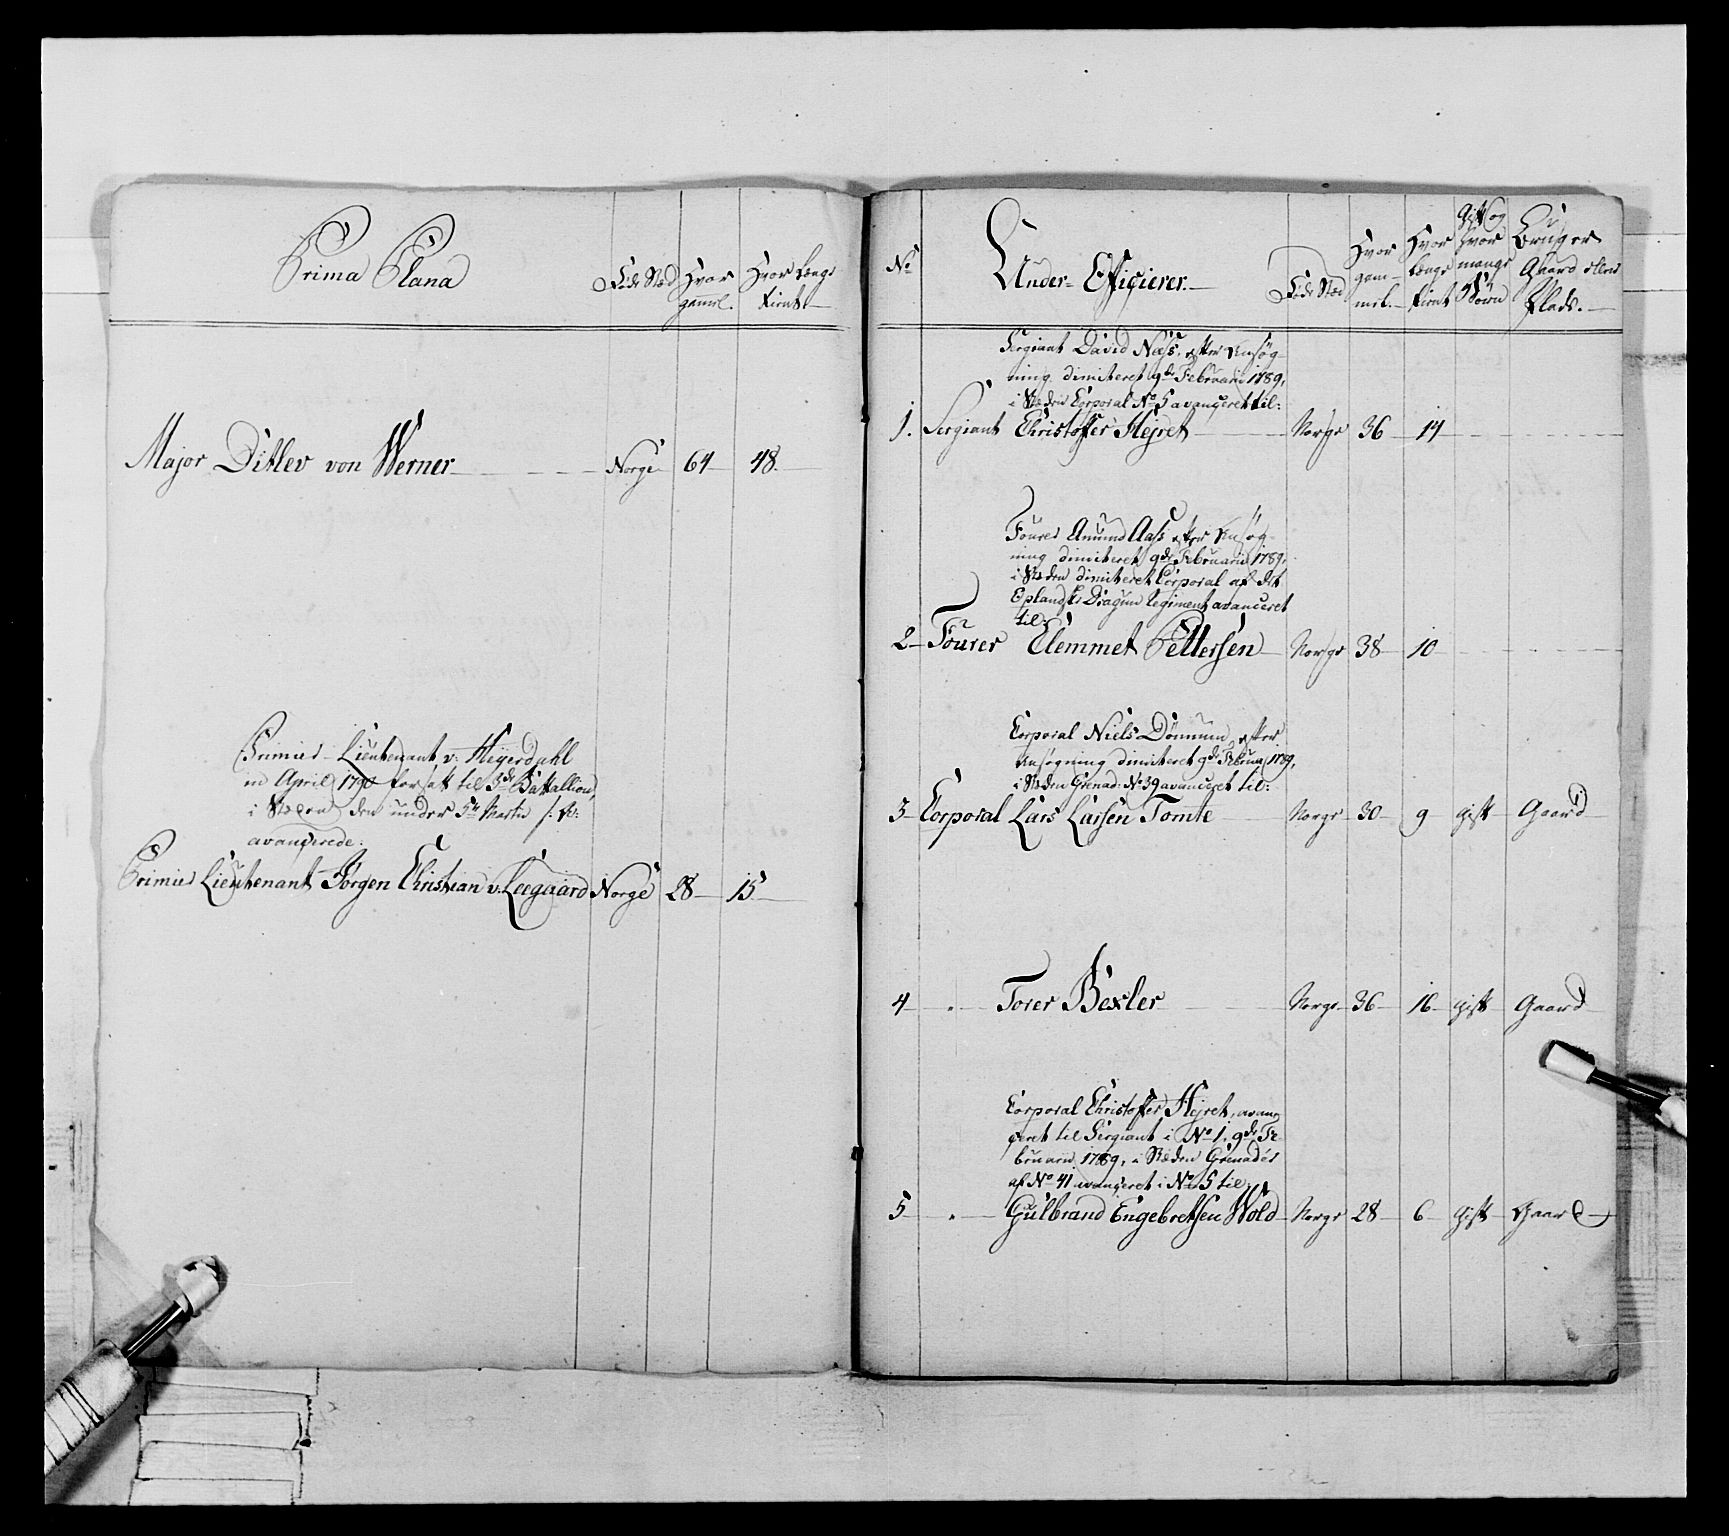 Prima Plana
Føde Stæd
Hvor
gaml.
Hvor Længe
tient
Major Ditlev von Werner
Norge
64
48.
Primier Lieutenant v: Heyerdahl
in April 1790 forsatt til 3de Battallion,
i Stæden den under 5te Martii
avancerede.
Primier Lieutenant Jørgen Christian v. Leegaard
Norge
28
15
No
Under-Officierer
Føde Stæd
Hvor
gam-
mel.
Hvor
længe
tient
gift og
hvor
mange
Børn
Bruger
Gaard eller
Plads.
Sergiant David Næss, efter Ansøg-
ning dimiteret 9de Februarii 1789,
i Stæden Corporal No 5 avanceret til:
1. Sergiant Christoffer Hejret
Norge
36
14
Fourer Amund Aass efter Ansøg-
ning dimiteret 9de Februarii 1789,
i Stæden dimiteret Corporal af det
Oplandske Dragun Regiment avanceret
til:
2 Fourer Clemmet Pettersen
Norge
38
10
Corporal Niels Dønnum, efter
Ansøgning dimiteret 9de Februar 1789,
i Stæden Grenad: No 39 avanceret til:
3 Corporal Lars Larsen Tomte
Norge
30
9
gift
Gaard
4 " Torer Bexler
Norge
36
16
gift
Gaard
Corporal Christoffer Hejret, avan-
ceret til Sergiant i No 1, 9de Fe-
bruarii 1789, i Stæden Grenadér
af No 41 avanceret i No 5 til:
5 " Gulbrand Engebretsen Wold
Norge
28
6
gift
Gaard